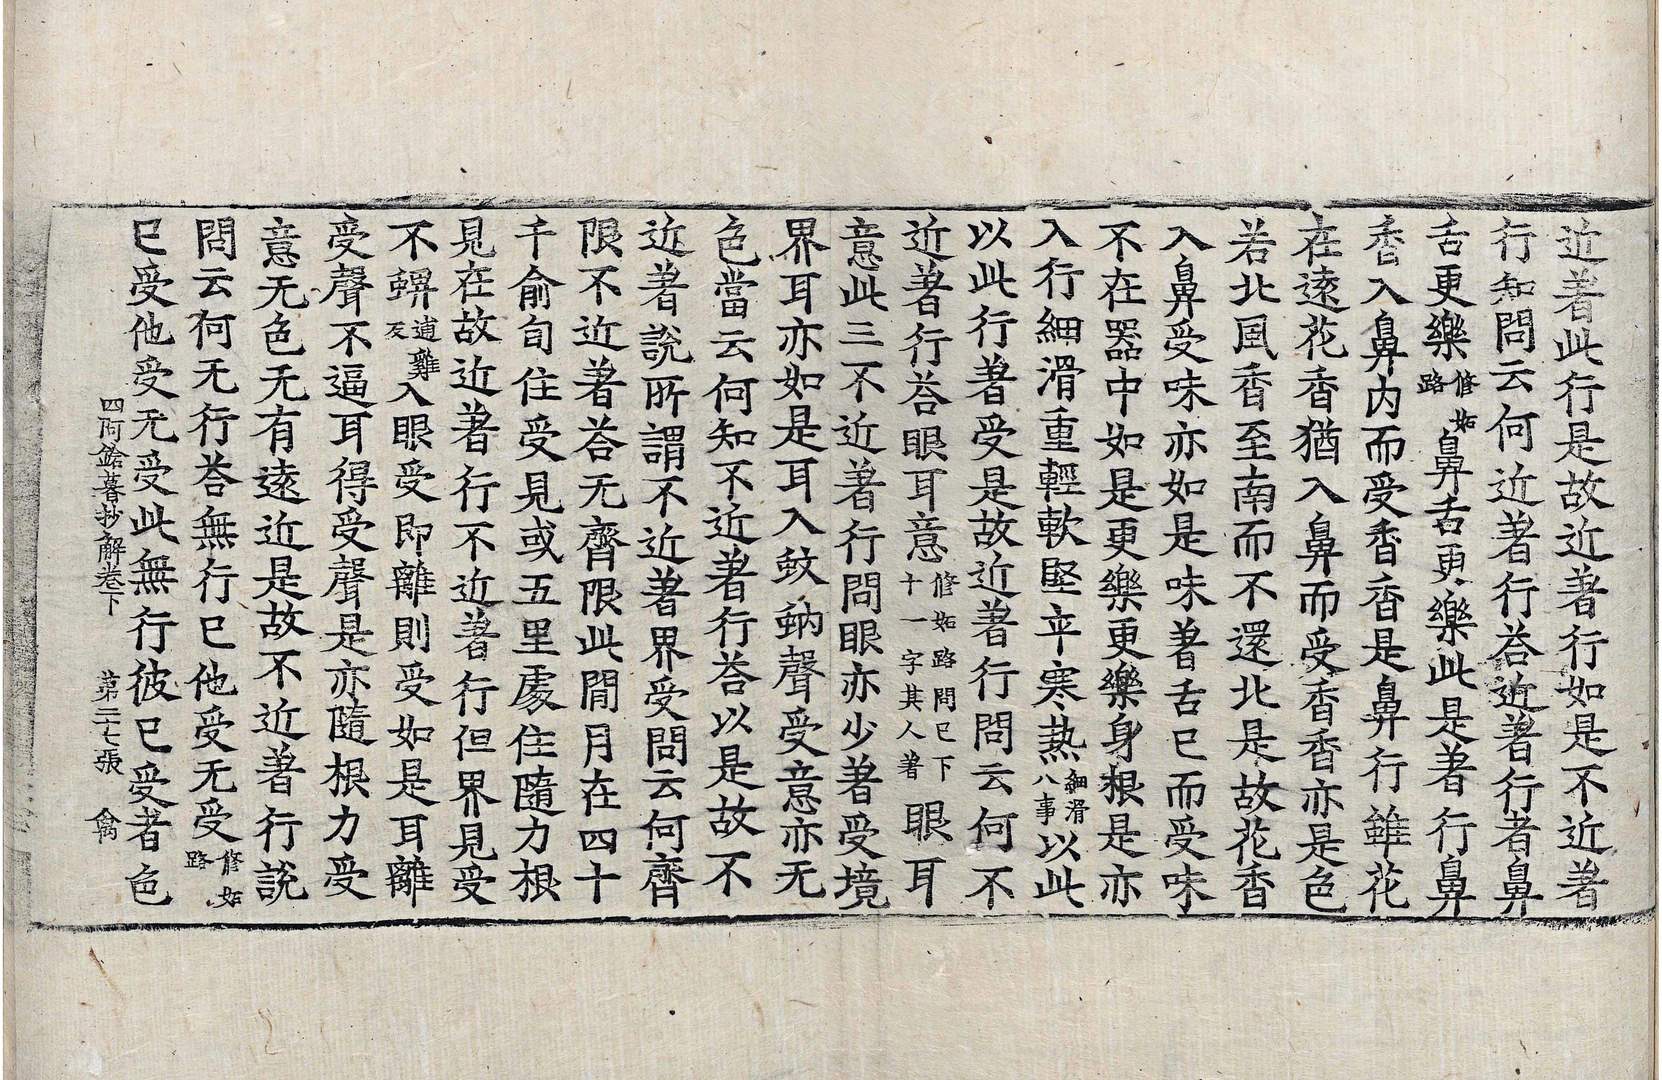 近著此行是故近著行如是不近著
行知問云何近著行荅近著行者鼻
舌更樂修妬路鼻舌更樂此是著行鼻
香入鼻內而受香香是鼻行雖花
在遠花香猶入鼻而受香香亦是色
若北風香至南而不還北是故花香
入鼻受味亦如是味著舌已而受味
不在器中如是更樂更樂身根是亦
入行細滑重輕軟堅平寒熱細滑八事以此
以此行著受是故近著行問云何不
近著行荅眼耳意修妬路問已下十一字其人著眼耳
意此三不近著行問眼亦少著受境
界耳亦如是耳入蚊蚋聲受意亦无
色當云何知不近著行荅以是故不
近著說所謂不近著界受問云何齊
限不近著荅无齊限此閒月在四十
千俞旬住受見或五里處住隨力根
見在故近著行不近著行但界見受
不䗯逍雞反入眼受即離則受如是耳離
受聲不逼耳得受聲是亦隨根力受
意无色无有遠近是故不近著行說
問云何无行荅無行已他受无受修妬路
已受他受无受此無行彼已受者色
四阿鋡暮抄解卷下 第二十七張 禽